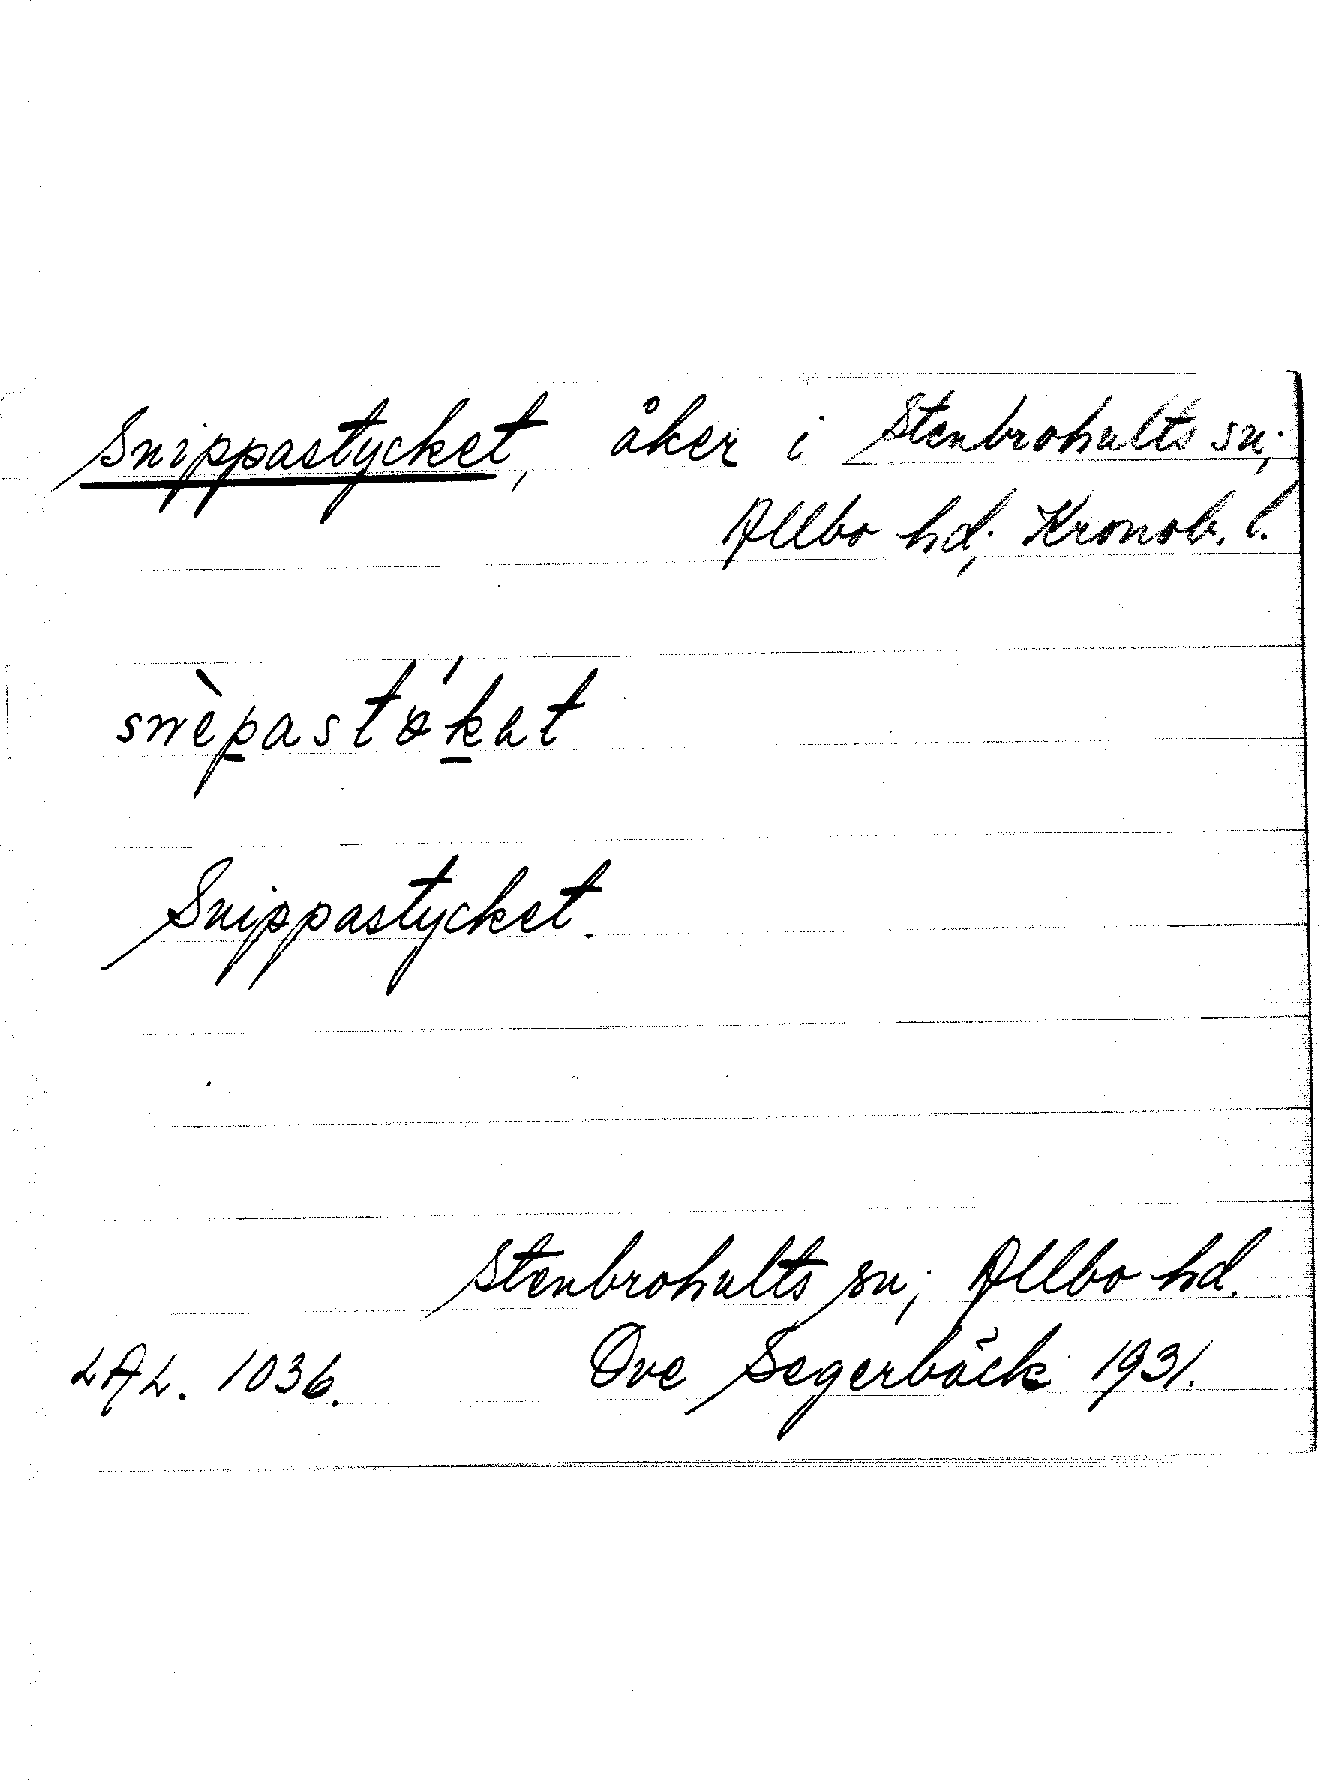 Snippastycket, åker i Stenbrohults sn;
Allbo hd; Kronob. l.
snèpastǿkat
Snippastycket.
Stenbrohults sn; Allbo hd.
LAL. 1036. Ove Segerbäck 1931.